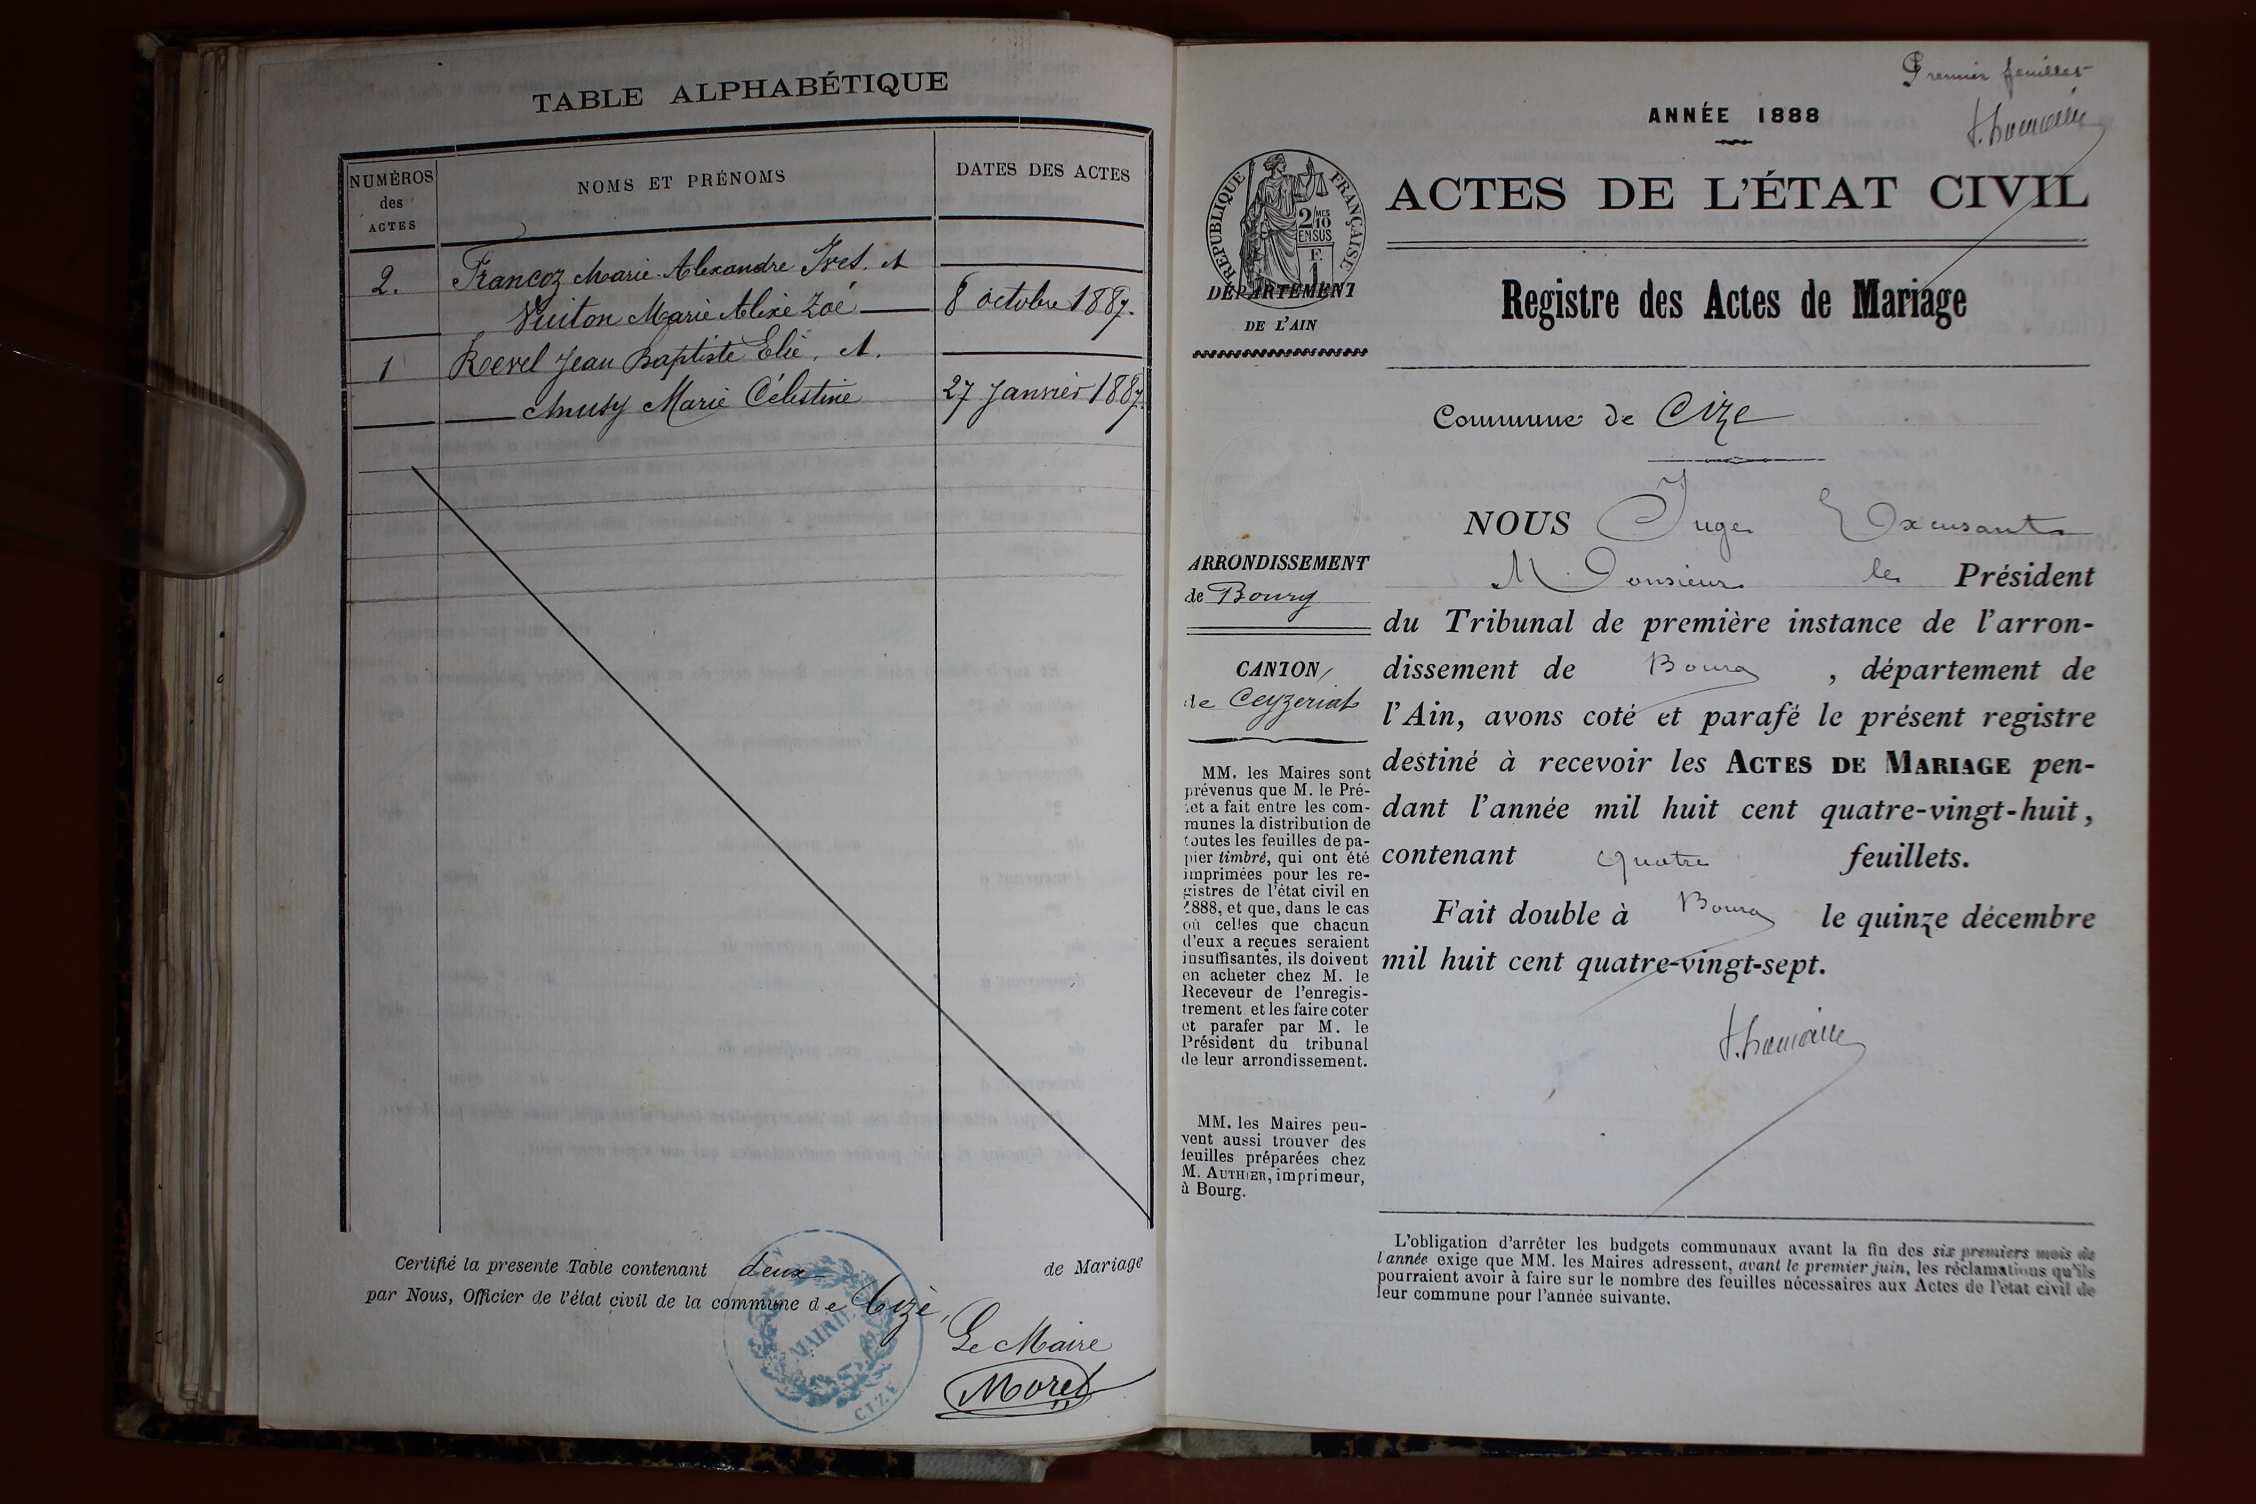 TABLE ALPHABÉTIQUE
NUMÉROS
des
ACTES
NOMS ET PRÉNOMS
DATES DES ACTES
2.
Francoz Marie Alexandre Yves. et
Vuiton Marie Alixe Zoé
8 octobre 1887.
1
Revel Jean Baptiste Elie. et.
Musy Marie Célestine
27 Janvier 1887.
Certifié la presente Table contenant deux de Mariage
par Nous, Officier de l'état civil de la commune de Cize,
MAIRIE
CIZE
Le Maire
Morel
Premier feuillet
ANNÉE 1888
RÉPUBLIQUE FRANÇAISE
2/10 MES
EN SUS
F.
1
DÉPARTEMENT
DE L'AIN
ACTES DE L'ÉTAT CIVIL
Registre des Actes de Mariage
Commune de Cize
ARRONDISSEMENT
de Bourg
CANTON
de Ceyzeriat
MM. les Maires sont
prévenus que M. le Pré-
fet a fait entre les com-
munes la distribution de
toutes les feuilles de pa-
pier timbré, qui ont été
imprimées pour les re-
gistres de l'état civil en
1888, et que, dans le cas
où celles que chacun
d'eux a reçues seraient
insuffisantes, ils doivent
en acheter chez M. le
Receveur de l'enregis-
trement et les faire coter
et parafer par M. le
Président du tribunal
de leur arrondissement.
MM. les Maires peu-
vent aussi trouver des
feuilles préparées chez
M. AUTHIER, imprimeur,
à Bourg.
NOUS Juge Excusant
Monsieur le Président
du Tribunal de première instance de l'arron-
dissement de Bourg, département de
l'Ain, avons coté et parafé le présent registre
destiné à recevoir les ACTES DE MARIAGE pen-
dant l'année mil huit cent quatre-vingt-huit,
contenant quatre feuillets.
Fait double à Bourg le quinze décembre
mil huit cent quatre-vingt-sept.
L'obligation d'arrêter les budgets communaux avant la fin des six premiers mois de
l'année exige que MM. les Maires adressent, avant le premier juin, les réclamations qu'ils
pourraient avoir à faire sur le nombre des feuilles nécessaires aux Actes de l'état civil de
leur commune pour l'année suivante.